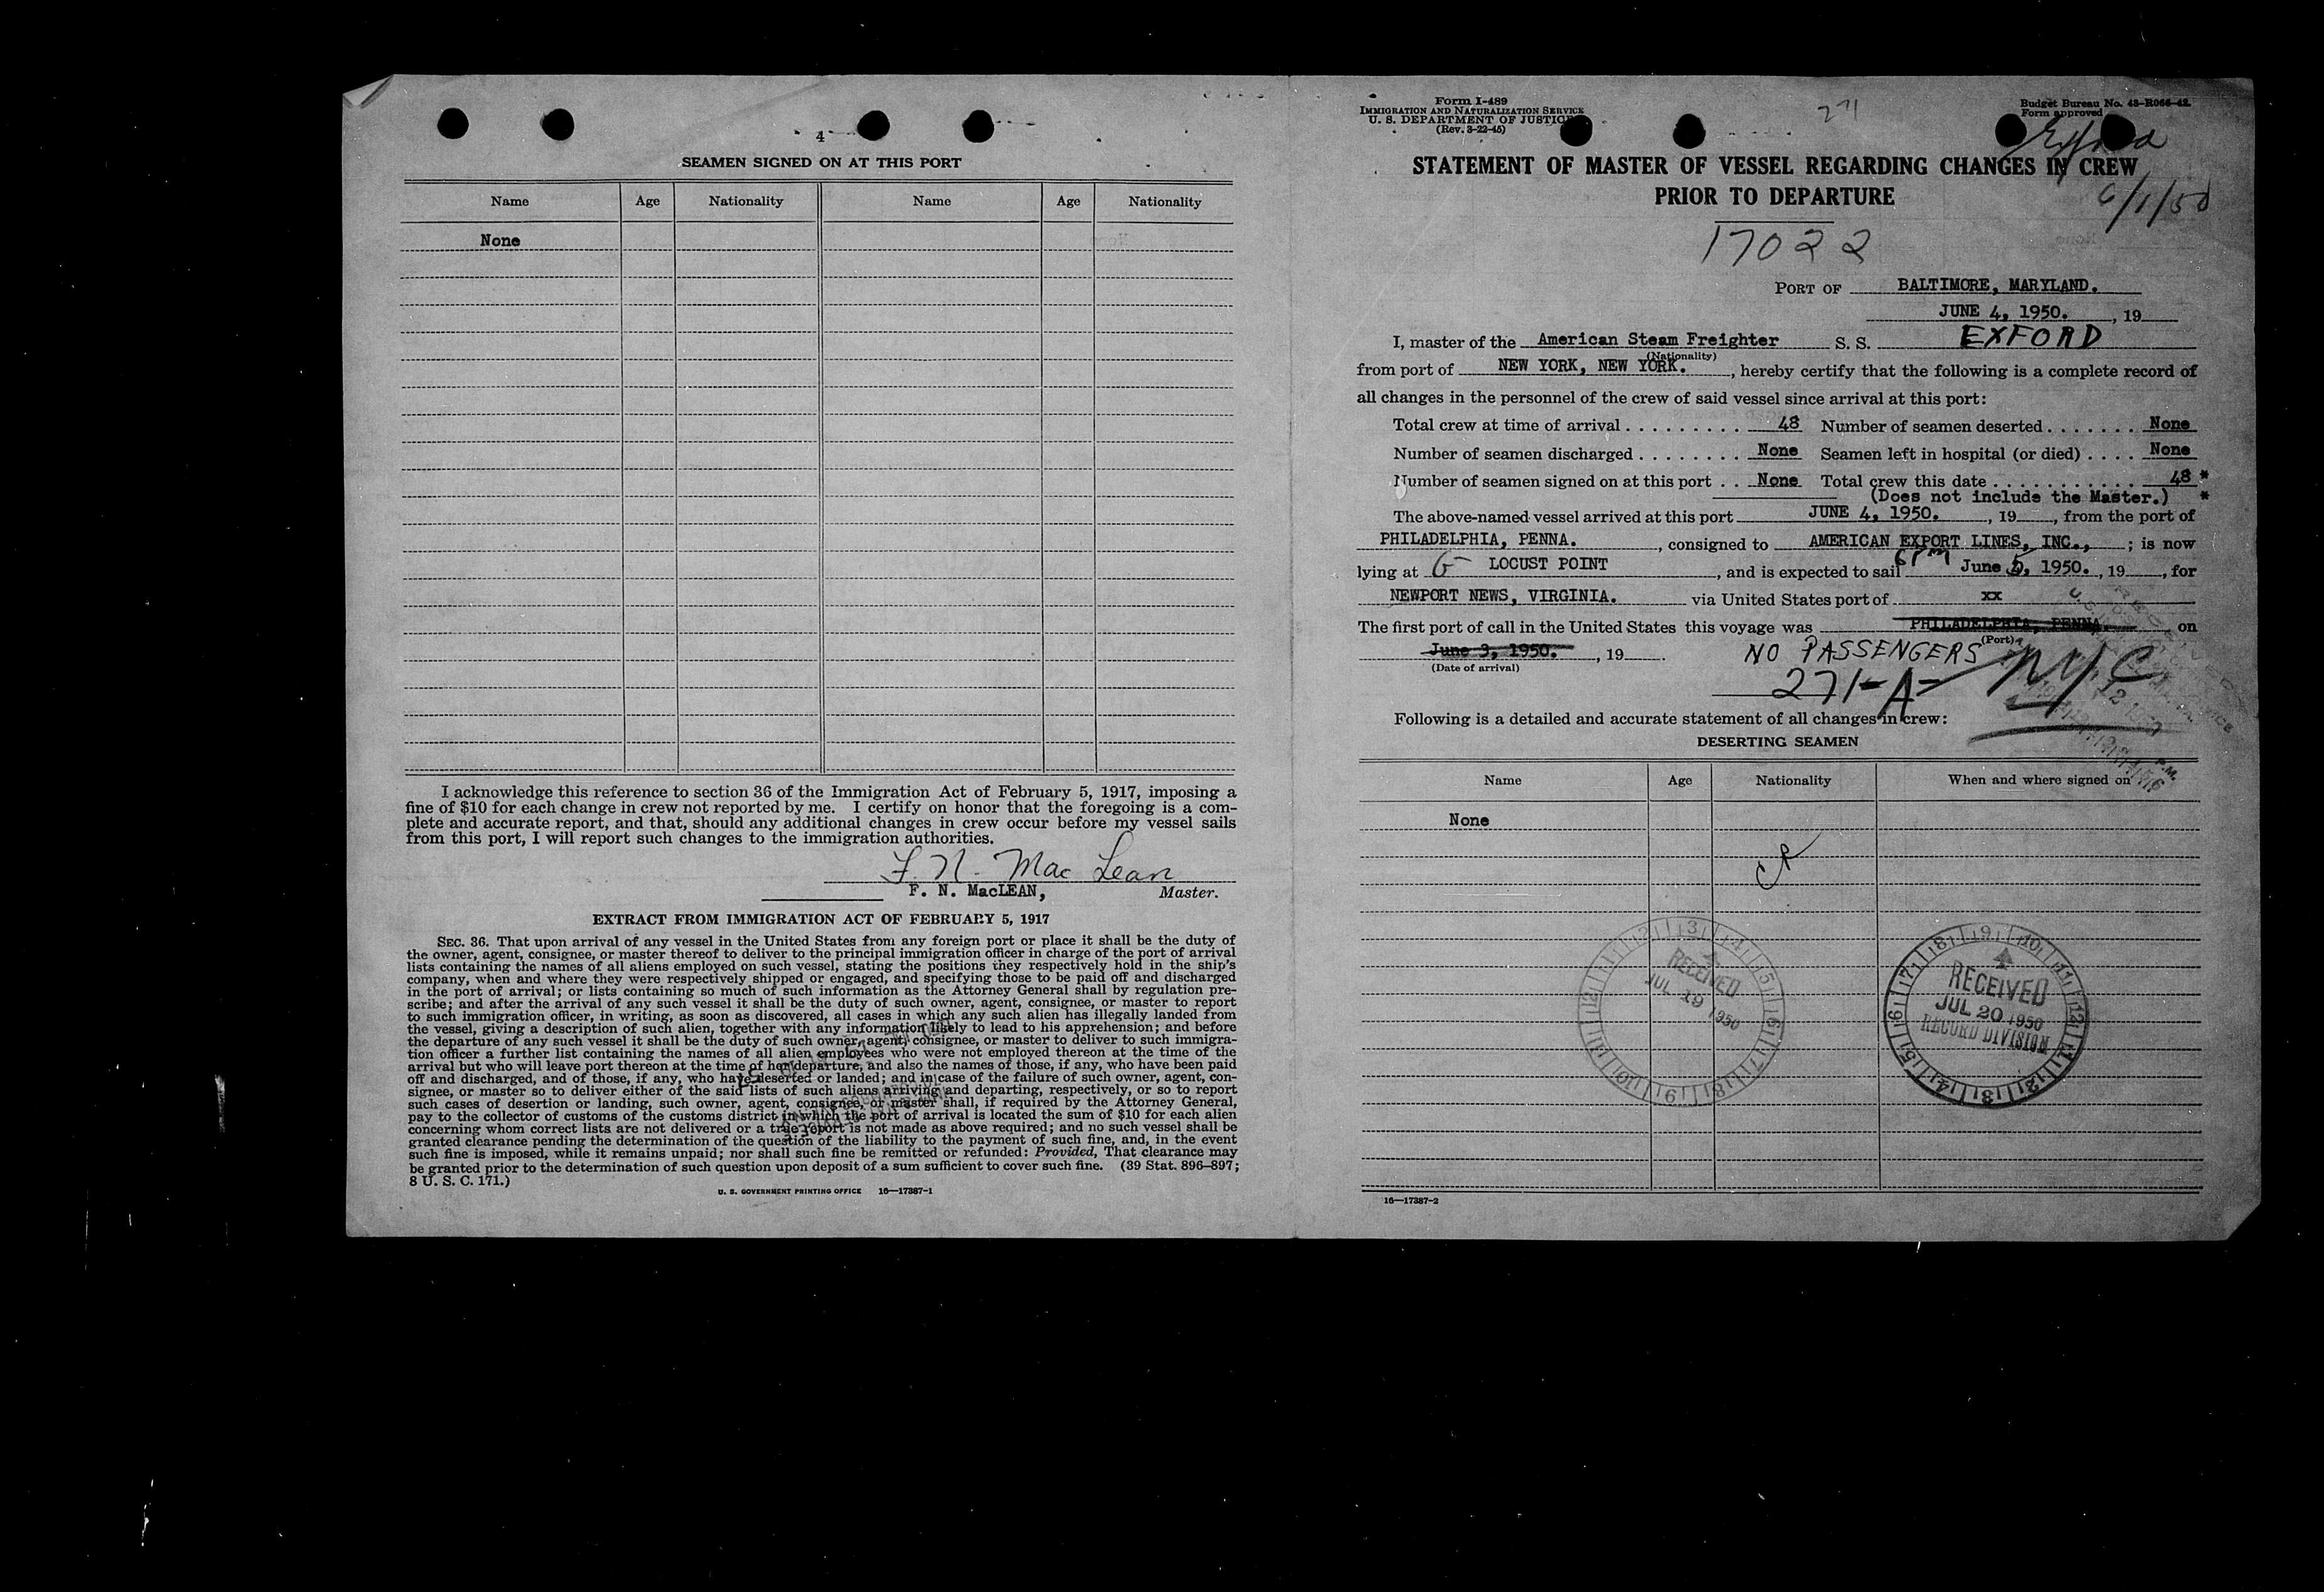 4
SEAMEN SIGNED ON AT THIS PORT
Name Age Nationality Name Age Nationality
None
I acknowledge this reference to section 36 of the Immigration Act of February 5, 1917, imposing a
fine of $10 for each change in crew not reported by me. I certify on honor that the foregoing is a com-
plete and accurate report, and that, should any additional changes in crew occur before my vessel sails
from this port, I will report such changes to the immigration authorities.
F. N. Mac Lean
F. N. MacLEAN, Master.
EXTRACT FROM IMMIGRATION ACT OF FEBRUARY 5, 1917
SEC. 36. That upon arrival of any vessel in the United States from any foreign port or place it shall be the duty of
the owner, agent, consignee, or master thereof to deliver to the principal immigration officer in charge of the port of arrival
lists containing the names of all aliens employed on such vessel, stating the positions they respectively hold in the ship's
company, when and where they were respectively shipped or engaged, and specifying those to be paid off and discharged
in the port of arrival; or lists containing so much of such information as the Attorney General shall by regulation pre-
scribe; and after the arrival of any such vessel it shall be the duty of such owner, agent, consignee, or master to report
to such immigration officer, in writing, as soon as discovered, all cases in which any such alien has illegally landed from
the vessel, giving a description of such alien, together with any information likely to lead to his apprehension; and before
the departure of any such vessel it shall be the duty of such owner, agent, consignee, or master to deliver to such immigra-
tion officer a further list containing the names of all alien employees who were not employed thereon at the time of the
arrival but who will leave port thereon at the time of her departure, and also the names of those, if any, who have been paid
off and discharged, and of those, if any, who have deserted or landed; and in case of the failure of such owner, agent, con-
signee, or master so to deliver either of the said lists of such aliens arriving and departing, respectively, or so to report
such cases of desertion or landing, such owner, agent, consignee, or master shall, if required by the Attorney General,
pay to the collector of customs of the customs district in which the port of arrival is located the sum of $10 for each alien
concerning whom correct lists are not delivered or a true report is not made as above required; and no such vessel shall be
granted clearance pending the determination of the question of the liability to the payment of such fine, and, in the event
such fine is imposed, while it remains unpaid; nor shall such fine be remitted or refunded: Provided, That clearance may
be granted prior to the determination of such question upon deposit of a sum sufficient to cover such fine. (39 Stat. 896–897;
8 U. S. C. 171.)
U. S. GOVERNMENT PRINTING OFFICE 16—17387-1
Form I-489
IMMIGRATION AND NATURALIZATION SERVICE
U. S. DEPARTMENT OF JUSTICE
(Rev. 3-22-45)
271
Budget Bureau No. 43-R066-42.
Form approved
Exford
STATEMENT OF MASTER OF VESSEL REGARDING CHANGES IN CREW
PRIOR TO DEPARTURE
6/1/50
17022
PORT OF BALTIMORE, MARYLAND.
JUNE 4, 1950. , 19
I, master of the American Steam Freighter S. S. EXFORD
(Nationality)
from port of NEW YORK, NEW YORK. , hereby certify that the following is a complete record of
all changes in the personnel of the crew of said vessel since arrival at this port:
Total crew at time of arrival . . . . . . . . . 48 Number of seamen deserted . . . . . . . None
Number of seamen discharged . . . . . . . . None Seamen left in hospital (or died) . . . . None
Number of seamen signed on at this port . . None Total crew this date . . . . . . . . . . . 48 *
(Does not include the Master.) *
The above-named vessel arrived at this port JUNE 4, 1950. , 19 , from the port of
PHILADELPHIA, PENNA. , consigned to AMERICAN EXPORT LINES, INC., ; is now
lying at G LOCUST POINT , and is expected to sail 6 PM June 5, 1950. , 19 , for
NEWPORT NEWS, VIRGINIA. via United States port of xx
The first port of call in the United States this voyage was PHILADELPHIA, PENNA. on
(Port)
June 3, 1950. , 19 . NO PASSENGERS N.Y.C.
(Date of arrival)
271-A-
Following is a detailed and accurate statement of all changes in crew:
DESERTING SEAMEN
Name Age Nationality When and where signed on
None
RECEIVED
JUL 19 1950
RECEIVED
JUL 20 1950
RECORD DIVISION
16—17387-2